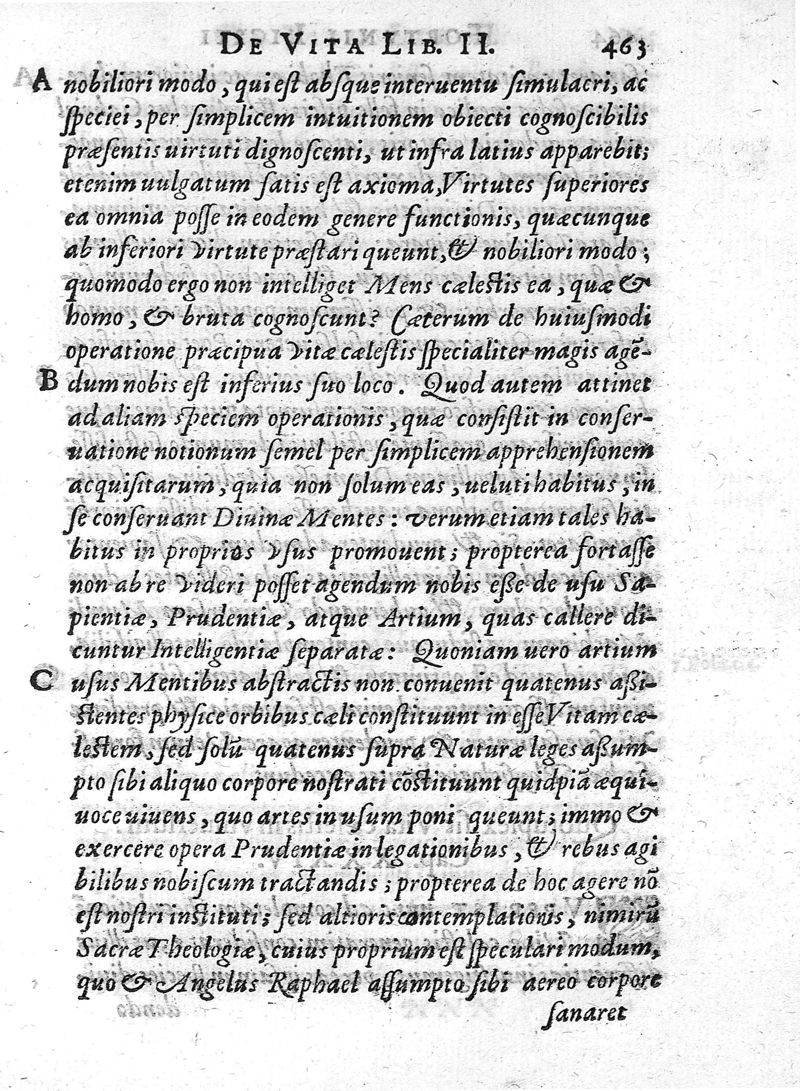 DE VITA LIB. II. 463
A nobiliori modo, qui est absque interuentu simulacri, ac
speciei, per simplicem intuitionem obiecti cognoscibilis
præsentis uirtuti dignoscenti, ut infra latius apparebit;
etenim uulgatum satis est axioma, Virtutes superiores
ea omnia posse in eodem genere functionis, quæcunque
ab inferiori virtute præstari queunt, & nobiliori modo;
quomodo ergo non intelliget Mens cælestis ea, quæ &
homo, & bruta cognoscunt? Cæterum de huiusmodi
operatione præcipua vitæ cælestis specialiter magis agē-
B dum nobis est inferius suo loco. Quod autem attinet
ad aliam speciem operationis, quæ consistit in conser-
uatione notionum semel per simplicem apprehensionem
acquisitarum, quia non solum eas, ueluti habitus, in
se conseruant Diuinæ Mentes: verum etiam tales ha-
bitus in proprios vsus promouent; propterea fortasse
non ab re videri posset agendum nobis esse de usu Sa-
pientiæ, Prudentiæ, atque Artium, quas callere di-
cuntur Intelligentiæ separatæ: Quoniam uero artium
C usus Mentibus abstractis non conuenit quatenus assi-
stentes physice orbibus cæli constituunt in esse Vitam cæ-
lestem, sed solū quatenus supra Naturæ leges assum-
pto sibi aliquo corpore nostrati cōstituunt quidpiā æqui-
uoce uiuens, quo artes in usum poni queunt; immo &
exercere opera Prudentiæ in legationibus, & rebus agi
bilibus nobiscum tractandis; propterea de hoc agere nō
est nostri instituti; sed altioris contemplationis, nimirū
Sacræ Theologiæ, cuius proprium est speculari modum,
quo & Angelus Raphael assumpto sibi aereo corpore
sanaret